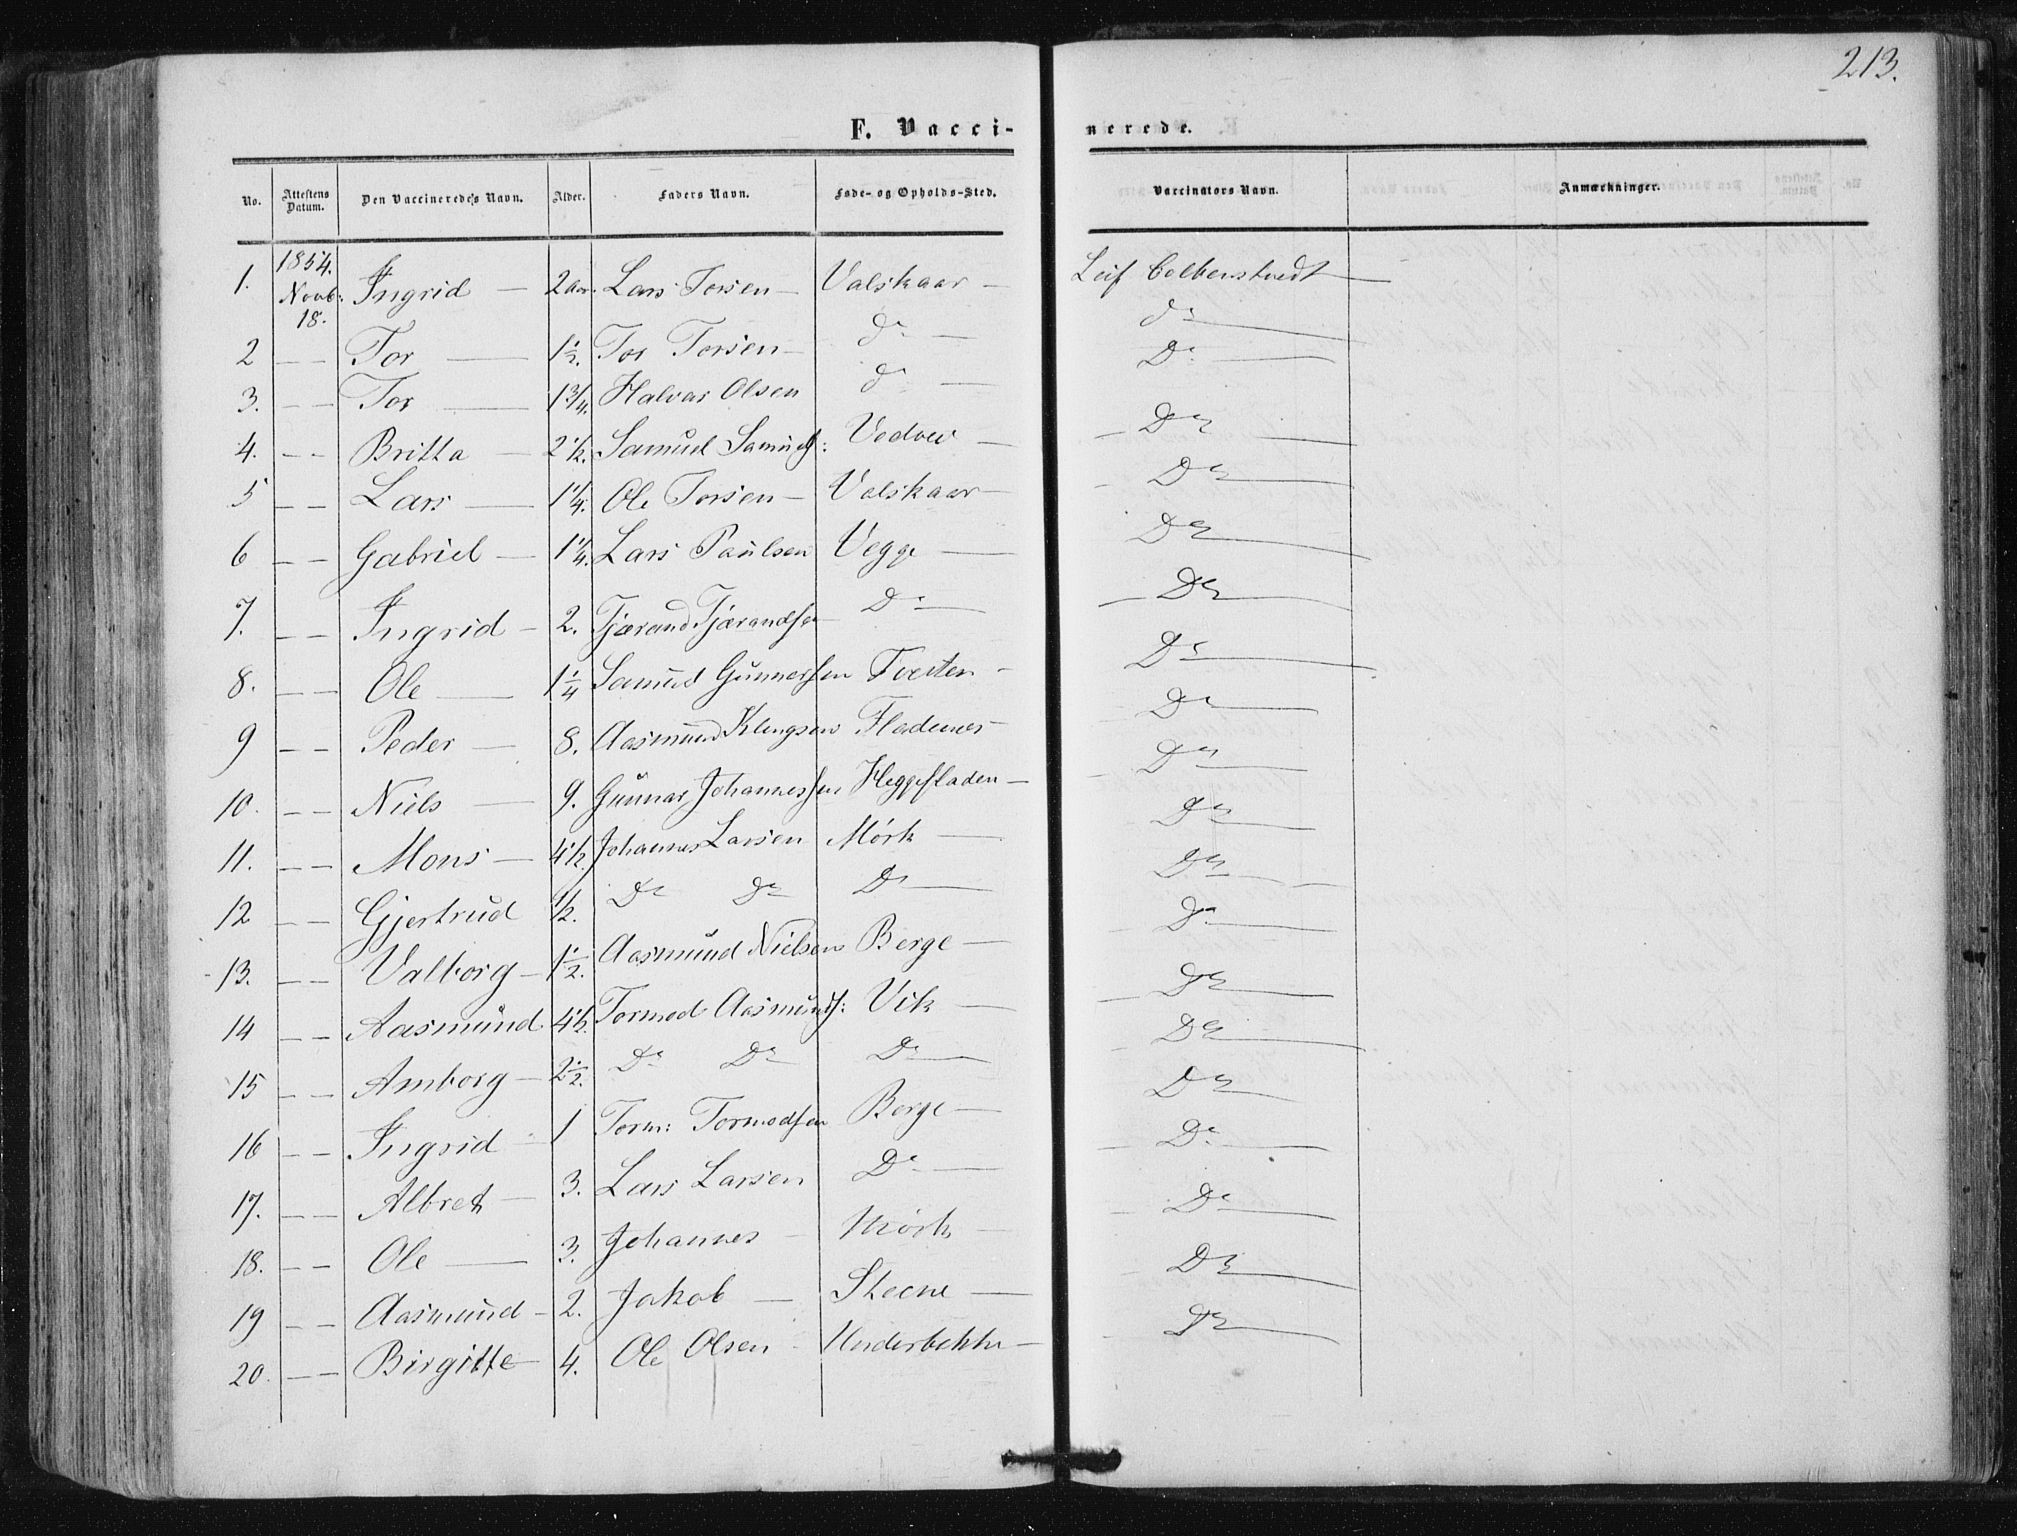 213.
F. Vacci- nerede.
No. Attestens Datum. Den Vaccineredes Navn. Alder. Faders Navn. Føde- og Opholds-Sted. Vaccinators Navn. Anmærkninger.
1. 1854. Novb: 18. Ingrid — 2 aar. Lars Torsen — Valskaar — Leif
2 — — Tor — 1½. Tor Torsen — do — do —
3. — — Tor — 1 3/4. Halvar Olsen do — Do —
4. — — Britta — 2½. Samuel Samuels: — Do —
5 — — Lars — 1¼. Ole Torsen — Valskaar — Do —
6 — — Gabriel — 1¼. Lars Paulsen Vegge — Do —
7. — — Ingrid — 2. Tjærand Tjærandsen Do — Do —
8. — — Ole — 1¼ Samuel Gunnarsen — Do —
9 — — Peder — 8. Aasmund Klengsen Fladenes — Do —
10. — — Niels — 9. Gunnar Johannessen Heggefladen — Do —
11. — — Mons — 4½. Johannes Larsen Mørk — Do —
12 — — Gjertrud ½. Do Do Do — Do —
13. — — Valborg — 1½. Aasmund Nielsen Berge — Do —
14 — — Aasmund 4½. Tormod Aasmunds: Vik — Do —
15 — — Amborg — 2½. Do Do Do — Do —
16 — — Ingrid — 1 Torm: Tormodsen Berge — Do —
17. — — Albret — 3. Lars Larsen Do — Do —
18. — — Ole — 3. Johannes — Mørk — Do —
19 — — Aasmund — 2. Jakob — Steene — Do —
20. — — Birgitte — 4. Ole Olsen — Underbakke — Do —